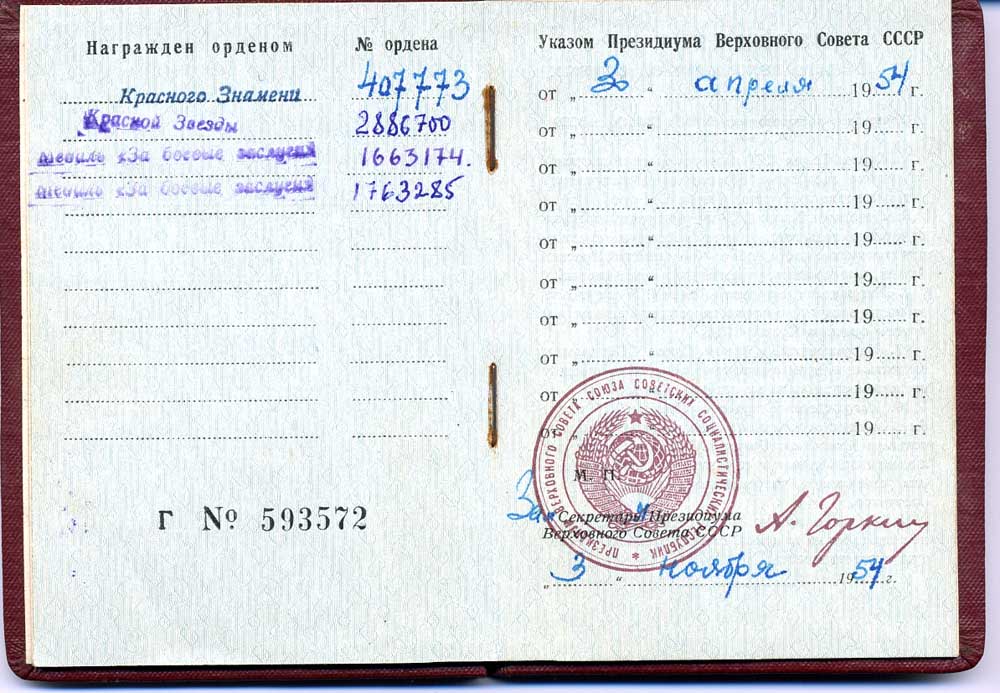 Награжден орденом
№ ордена
Красного Знамени 407773
Красной Звезды 2886700
медаль «За боевые заслуги» 1663174.
медаль «За боевые заслуги» 1763285
Г № 593572
Указом Президиума Верховного Совета СССР
от „ 30 “ апреля 1954 г.
от „ “ 19 г.
от „ “ 19 г.
от „ “ 19 г.
от „ “ 19 г.
от „ “ 19 г.
от „ “ 19 г.
от „ “ 19 г.
от „ “ 19 г.
от „ “ 19 г.
ПРЕЗИДИУМ ВЕРХОВНОГО СОВЕТА СОЮЗА СОВЕТСКИХ СОЦИАЛИСТИЧЕСКИХ РЕСПУБЛИК
М. П.
Зам Секретарь Президиума
Верховного Совета СССР
А. Горкин
„ 3 “ ноября 1954 г.